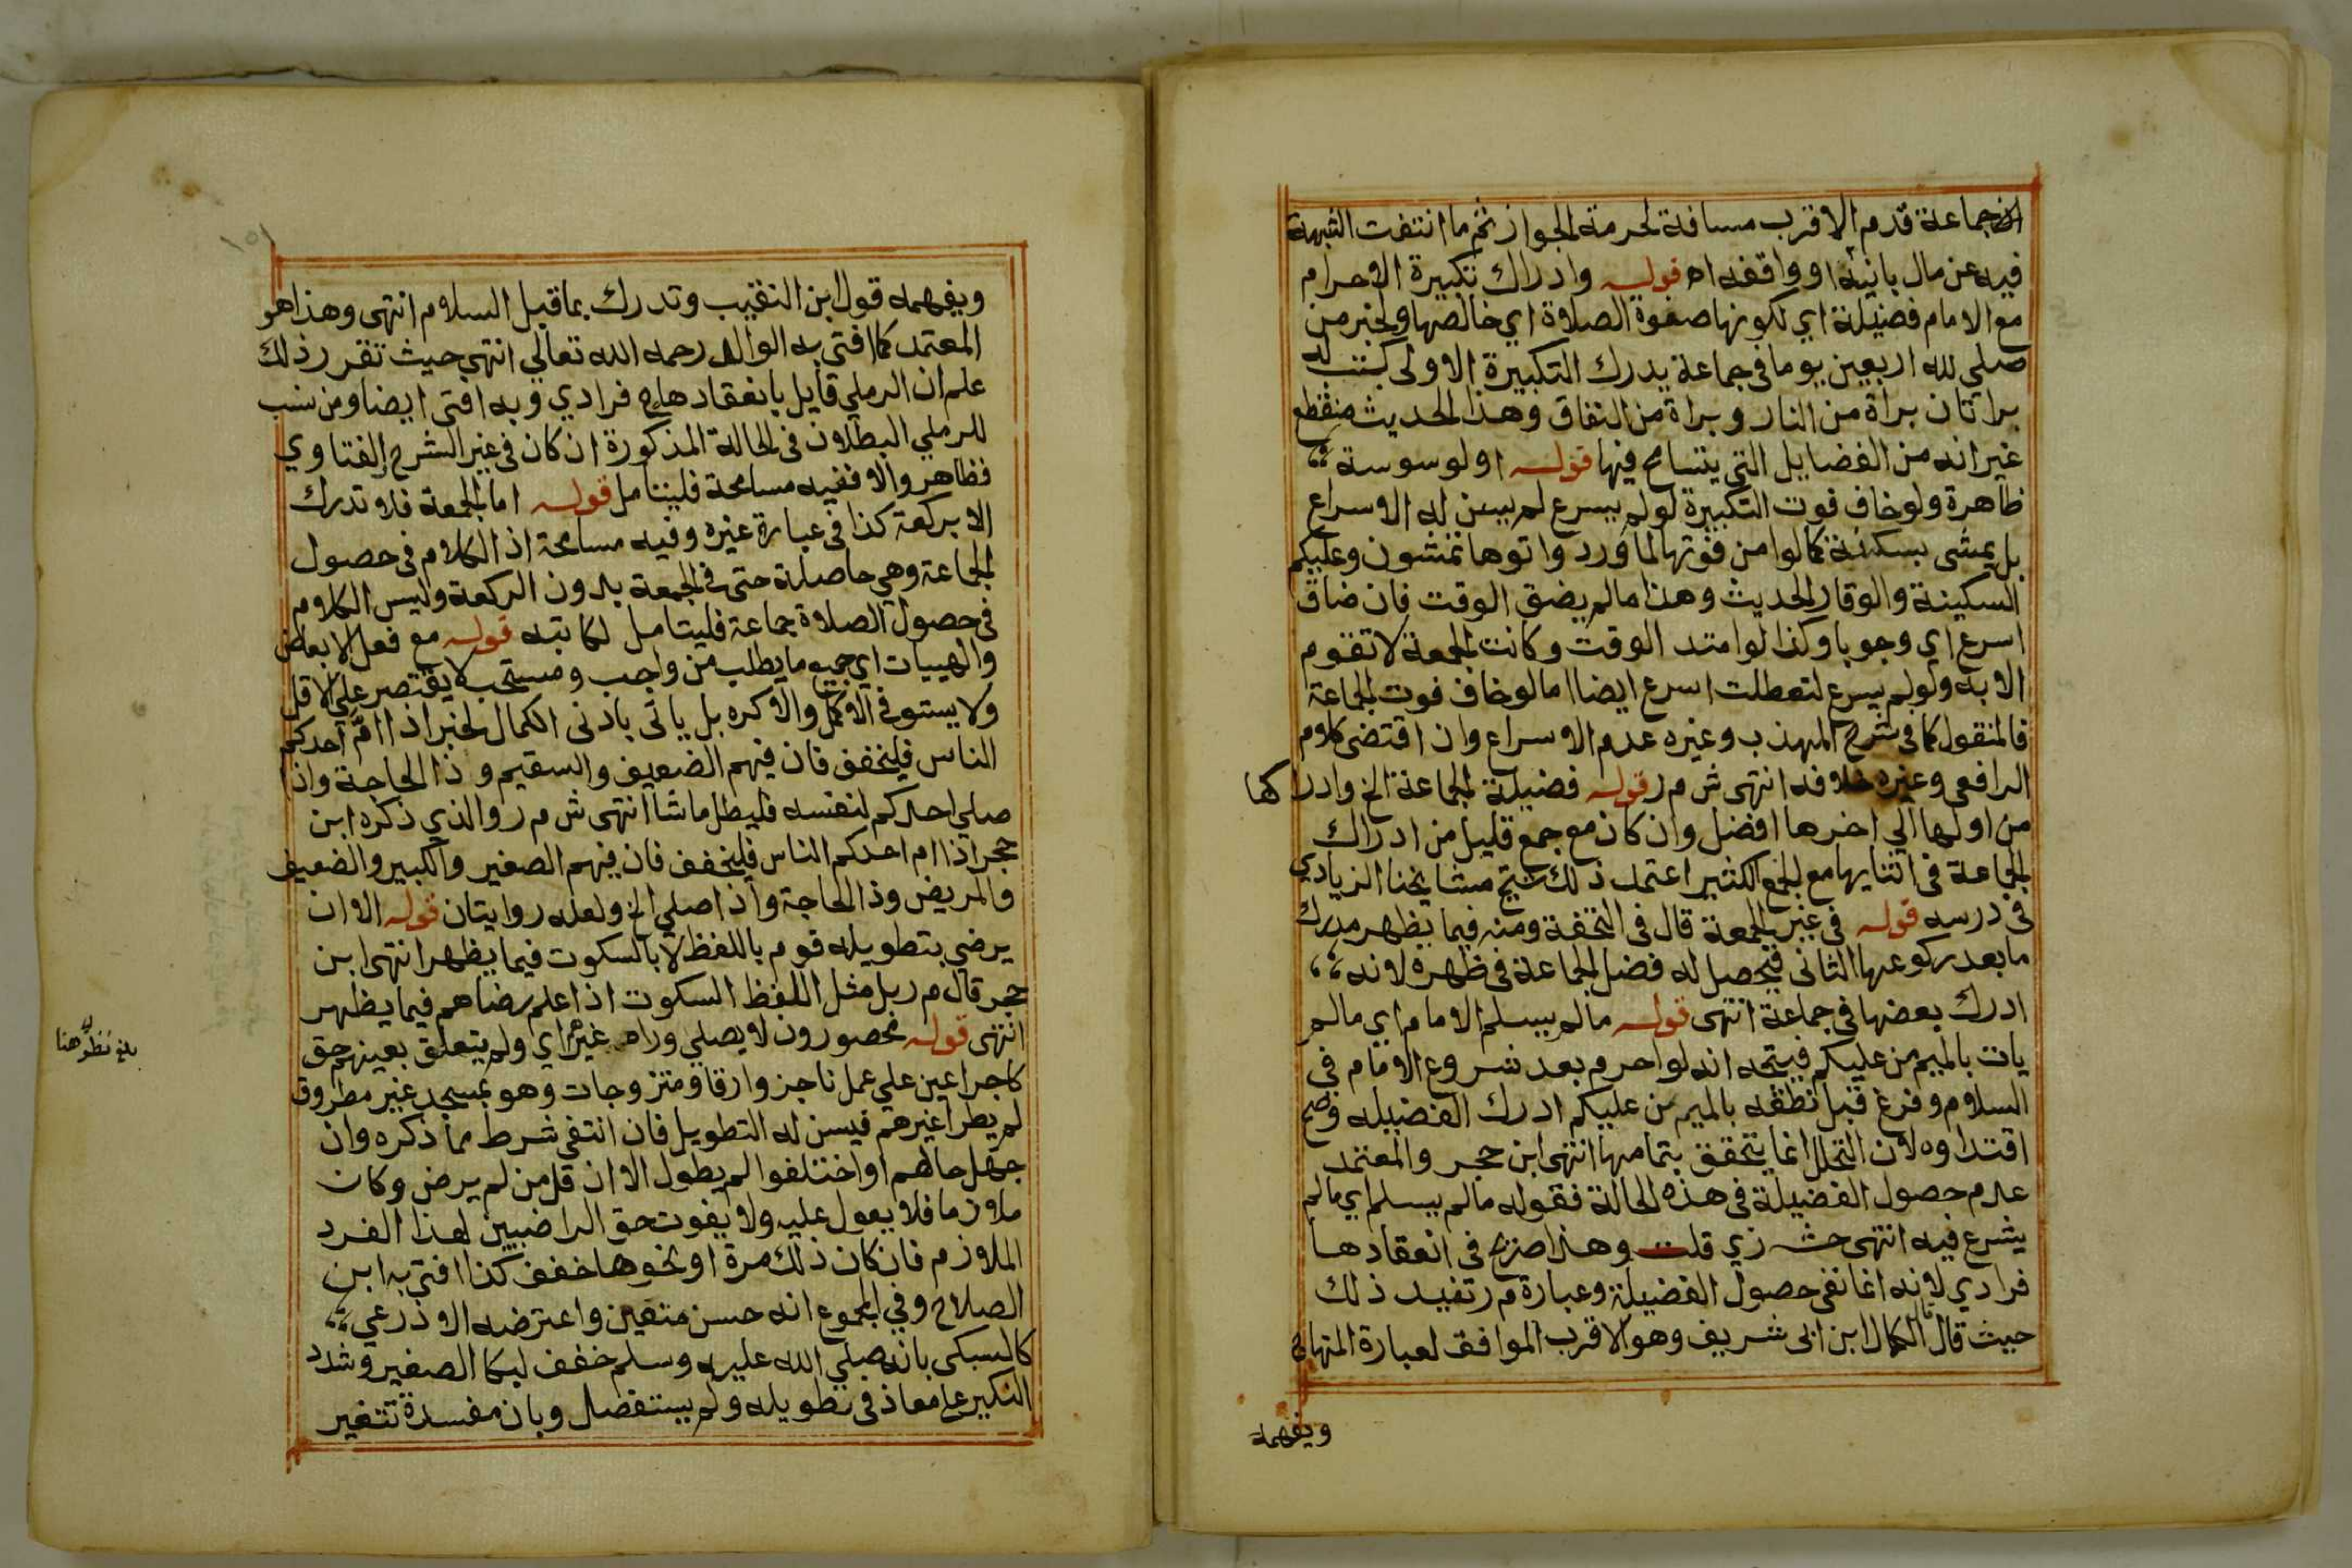 جماعة قدم الاقرب مسافة لحرمة الجوار ثم ما انتفت الشبهة
فيه عن مال بانيه او واقفه اه قوله وادراك تكبيرة الاحرام
مع الامام فضيلة اي لكونها صفوة الصلاة اي خالصها ولخبر من
صلي لله اربعين يوما في جماعة يدرك التكبيرة الاولى كتب له
براتان براة من النار وبراة من النفاق وهذا الحديث منقطع
غير انه من الفضايل التي يتسامح فيها قوله او لوسوسة
ظاهرة ولو خاف فوت التكبيرة لو لم يسرع لم يسن له الاسراع
بل يمشى بسكينة كما لو امن فوتها لما ورد واتوها تمشون وعليكم
السكينة والوقار الحديث وهذا ما لم يضق الوقت فان ضاق
اسرع اي وجوبا وكذا لو امتد الوقت وكانت الجمعة لا تقوم
الا به ولو لم يسرع لتعطلت اسرع ايضا اما لو خاف فوت الجماعة
فالمنقول كما في شرح المهذب وغيره عدم الاسراع وان اقتضى كلام
الرافعي وغيره خلافه انتهى ش م ر قوله فضيلة الجماعة الخ وادراكها
من اولها الي اخرها افضل وان كان مع جمع قليل من ادراك
الجماعة في اثنايها مع الجمع الكثير اعتمد ذلك شيخ مشايخنا الزيادي
في درسه قوله في غير الجمعة قال في التحفة ومنه فيما يظهر مدرك
ما بعد ركوعها الثاني فيحصل له فضل الجماعة في ظهره لانه
ادرك بعضها في جماعة انتهى قوله ما لم يسلم الامام اي ما لم
يات بالميم من عليكم فيتجه انه لو احرم بعد شروع الامام في
السلام وفرغ قبل نطقه بالميم من عليكم ادرك الفضيلة وصح
اقتداوه لان التحلل انما يتحقق بتمامها انتهى ابن حجر والمعتمد
عدم حصول الفضيلة في هذه الحالة فقوله ما لم يسلم اي ما لم
يشرع فيه انتهى حشـ زي قلت وهذا صريح في انعقادها
فرادي لانه انما نفى حصول الفضيلة وعبارة م ر تفيد ذلك
حيث قال قال الكمال ابن ابي شريف وهو الاقرب الموافق لعبارة المنهاج
ويفهمه
ويفهمه قول ابن النقيب وتدرك بما قبل السلام انتهى وهذا هو
المعتمد كما افتى به الوالد رحمه الله تعالي انتهى حيث تقرر ذلك
علم ان الرملي قايل بانعقادها ح فرادي وبه افتى ايضا ومن نسب
للرملي البطلان في الحالة المذكورة ان كان في غير الشرح والفتاوي
فظاهر والا ففيه مسامحة فليتامل قوله اما الجمعة فلا تدرك
الا بركعة كذا في عبارة غيره وفيه مسامحة اذ الكلام في حصول
الجماعة وهي حاصلة حتى في الجمعة بدون الركعة وليس الكلام
في حصول الصلاة جماعة فليتامل لكاتبه قوله مع فعل الابعاض
والهييات اي جميع ما يطلب من واجب ومستحب لا يقتصر علي الاقل
ولا يستوفي الاكمل والا كره بل ياتى بادنى الكمال لخبر اذا ام احدكم
الناس فليخفف فان فيهم الضعيف والسقيم وذا الحاجة واذا
صلي احدكم لنفسه فليطل ما شا انتهى ش م ر والذي ذكره ابن
حجر اذا ام احدكم الناس فليخفف فان فيهم الصغير والكبير والضعيف
والمريض وذا الحاجة واذا صلي الخ ولعله روايتان قوله الا ان
يرضي بتطويله قوم باللفظ لا بالسكوت فيما يظهر انتهى ابن
حجر قال م ر بل مثل اللفظ السكوت اذا علم رضاهم فيما يظهر
انتهى قوله محصورون لا يصلي وراه غيرهم اي ولم يتعلق بعينهم حق
كاجرا عين علي عمل ناجز وارقا ومتزوجات وهو بمسجد غير مطروق
لم يطرا غيرهم فيسن له التطويل فان انتفى شرط مما ذكره وان
جهل حالهم او اختلفوا لم يطول الا ان قل من لم يرض وكان
ملازما فلا يعول عليه ولا يفوت حق الراضيين لهذا الفرد
الملازم فان كان ذلك مرة او نحوها خفف كذا افتى به ابن
الصلاح وفي المجموع انه حسن متعين واعترضه الاذرعي
كالسبكي بانه صلي الله عليه وسلم خفف لبكا الصغير وشدد
النكير علي معاذ في تطويله ولم يستفصل وبان مفسدة تنفير
بلغ نظره هنا